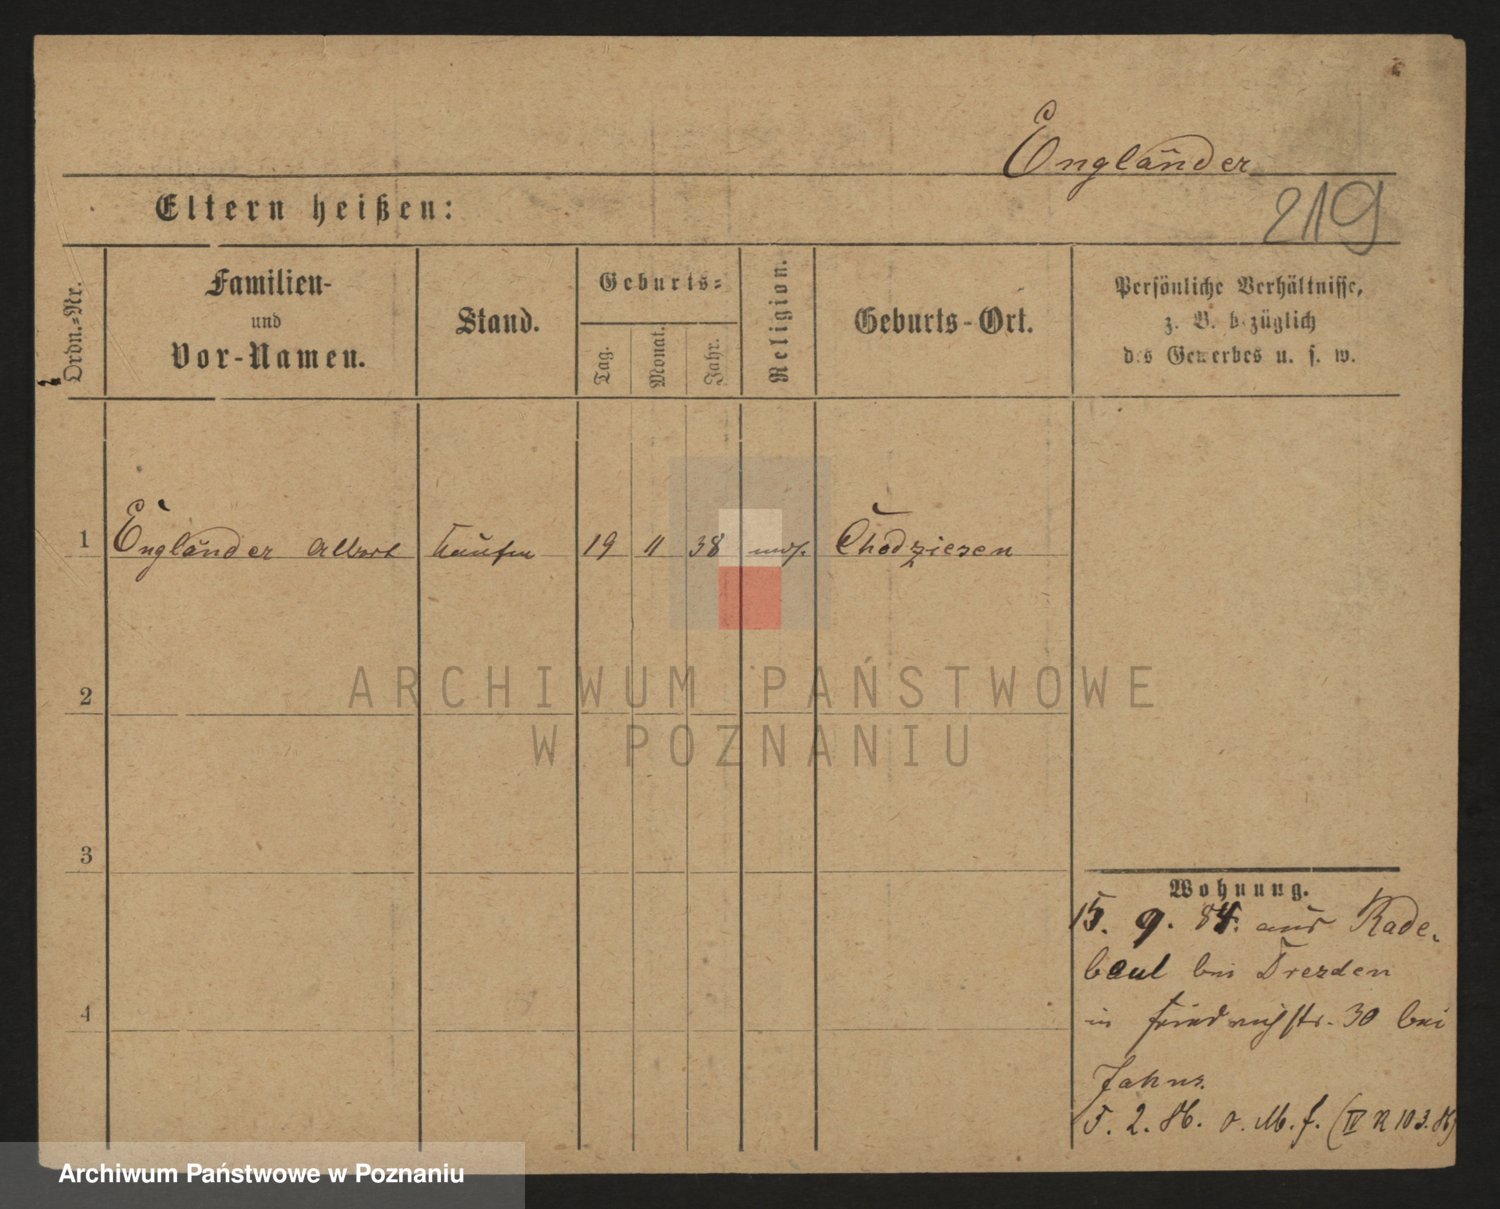 Engländer
219
Eltern heißen:
Ordn.-Nr.
Familien-
und
Vor-Namen.
Stand.
Geburts-
Tag.
Monat.
Jahr.
Religion.
Geburts-Ort.
Persönliche Verhältnisse,
z. B. bezüglich
des Gewerbes u. s. w.
1 Engländer Albert Kaufm 19 11 38 mos. Chodziesen
2
3
4
Wohnung.
15. 9. 84. aus Rade-
beul bei Dresden
in Friedrichstr. 30 bei
Jahns.
5. 2. 86. o. M. f. (IV R 103.86)
ARCHIWUM PAŃSTWOWE
W POZNANIU
Archiwum Państwowe w Poznaniu